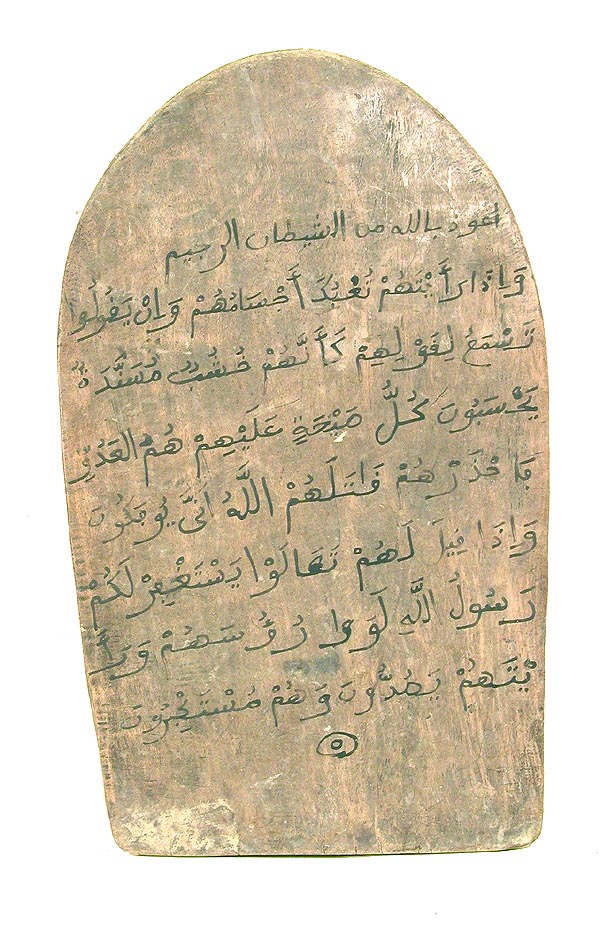 أعوذ بالله من الشيطان الرجيم
وَإِذَا رَأَيْتَهُمْ تُعْجِبُكَ أَجْسَامُهُمْ وَإِنْ يَقُولُوا
تَسْمَعْ لِقَوْلِهِمْ كَأَنَّهُمْ خُشُبٌ مُسَنَّدَةٌ
يَحْسَبُونَ كُلَّ صَيْحَةٍ عَلَيْهِمْ هُمُ العَدُوُّ
فَاحْذَرْهُمْ قَاتَلَهُمْ اللَّهُ أَنَّى يُوفَكُونَ
وَإِذَا قِيلَ لَهُمْ تَعَالَوْا يَسْتَغْفِرْ لَكُمْ
رَسُولُ اللَّهِ لَوَوْا رُؤُسَهُمْ وَرَأَ
يْتَهُمْ يَصُدُّونَ وَهُمْ مُسْتَكْبِرُونَ
٥